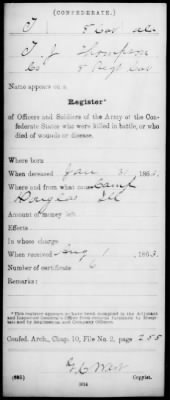 (CONFEDERATE.)
T 8 Cav Ala
T. J. Thompson
Co 8 Regt Cav
Name appears on a
Register*
of Officers and Soldiers of the Army of the Con-
federate States who were killed in battle, or who
died of wounds or disease.
Where born
When deceased Jan 31, 1865.
Where and from what cause Camp
Douglas Ill
Amount of money left
Effects
In whose charge
When received Aug 1, 1863.
Number of certificate 6
Remarks:
*This registry appears to have been compiled in the Adjutant
and Inspector General's Office from returns furnished by
and by Regimental and Company Officers.
Confed. Arch., Chap. 10, File No. 2, page 255
G. C. West
(635) Copyist.